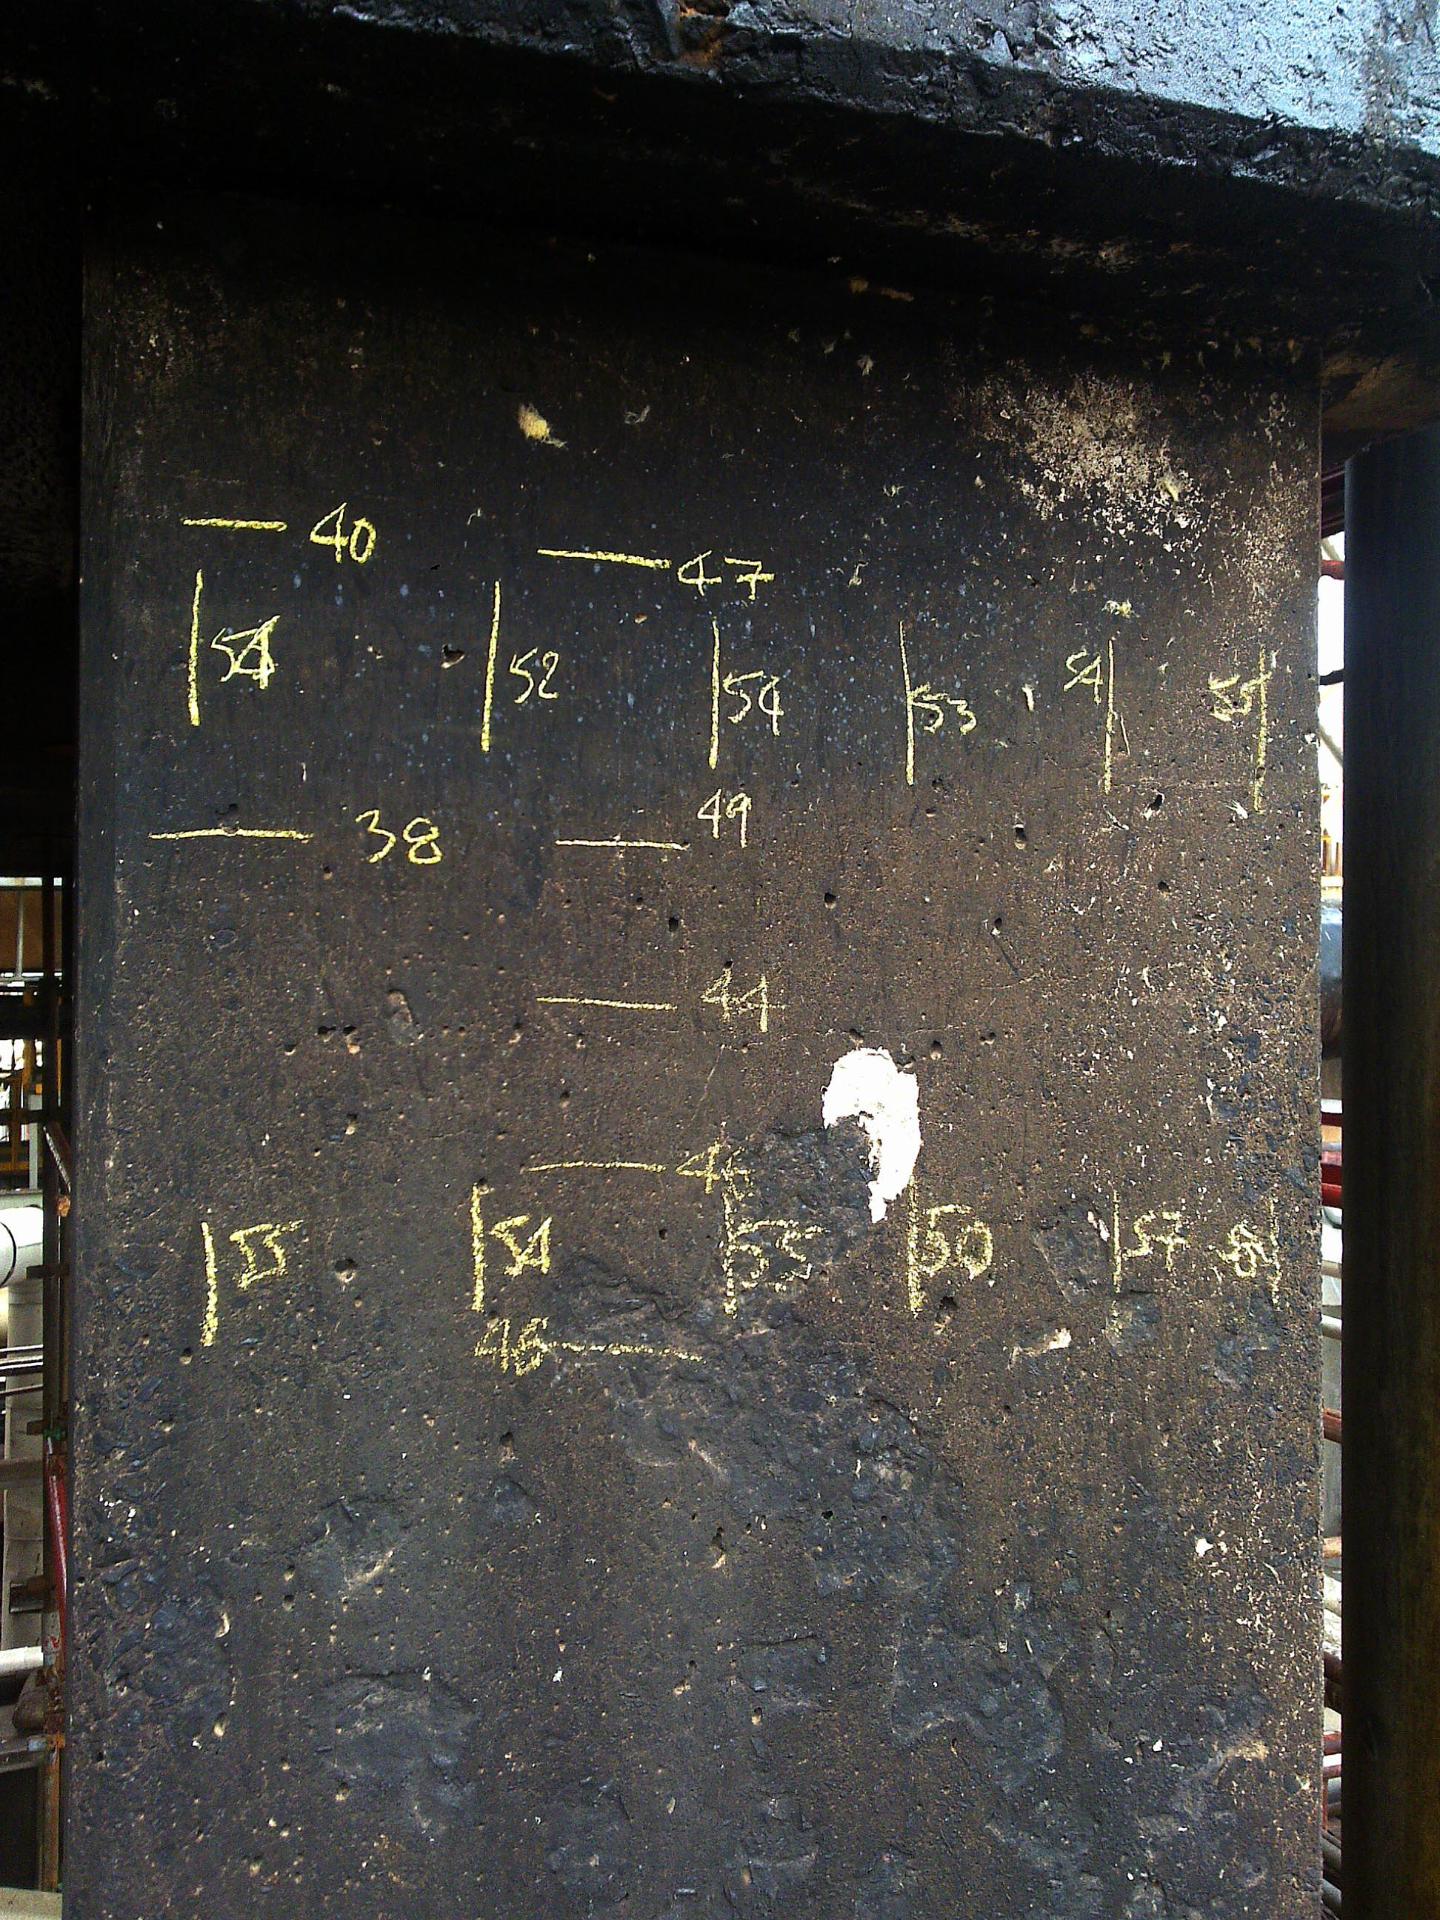 40
47
54 52 54 53 54 55
38 49
44
46
55 54 55 50 57 51
48